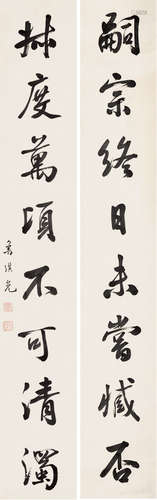 嗣宗終日未嘗臧否
叔度萬頃不可清濁
魯琪光